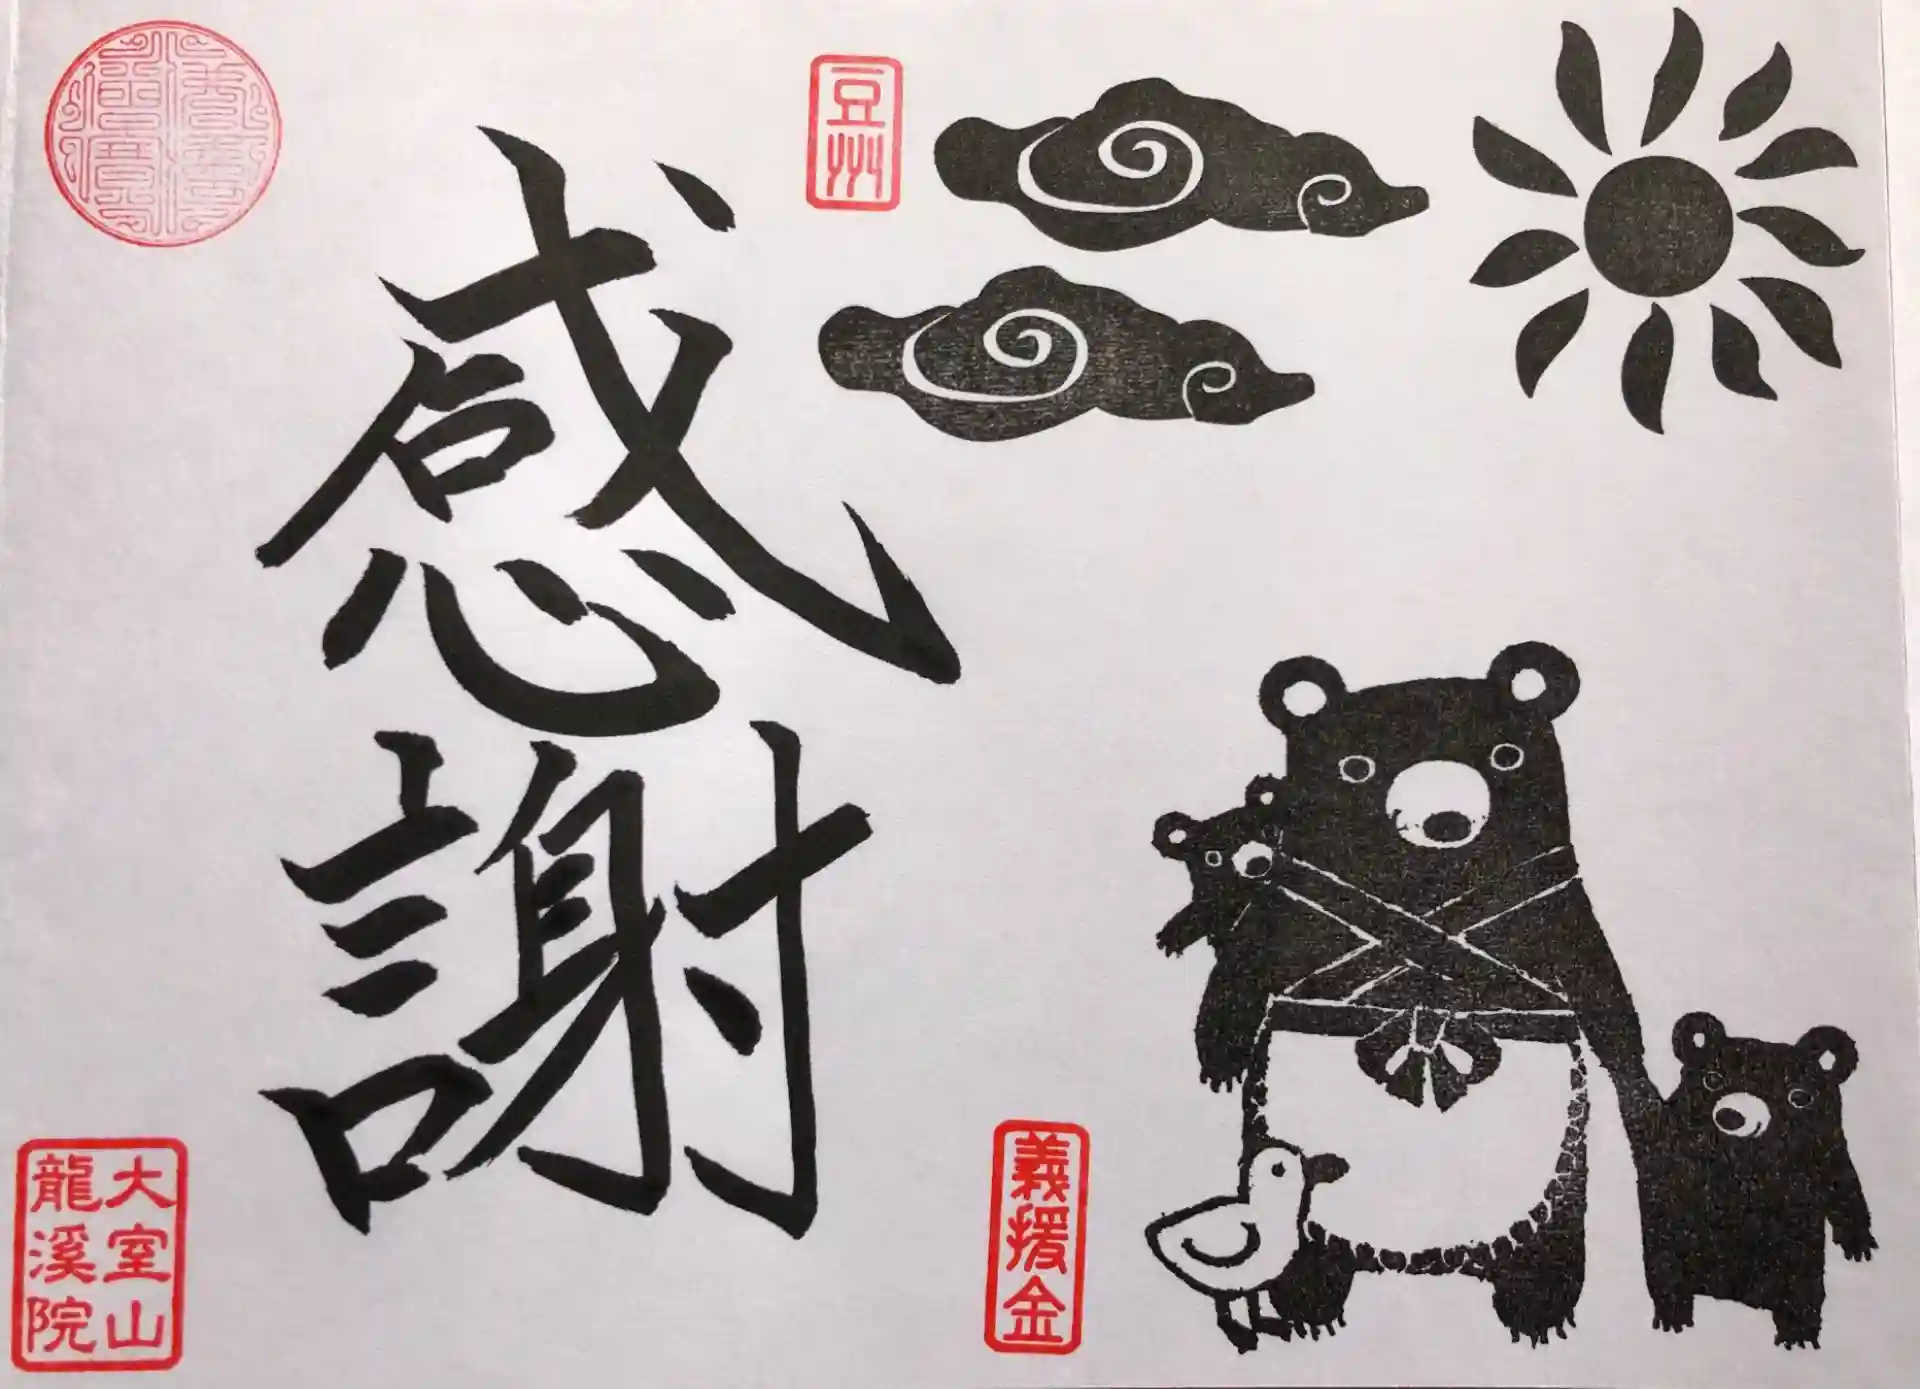 豆州
感謝
義援金
大室山
龍溪院